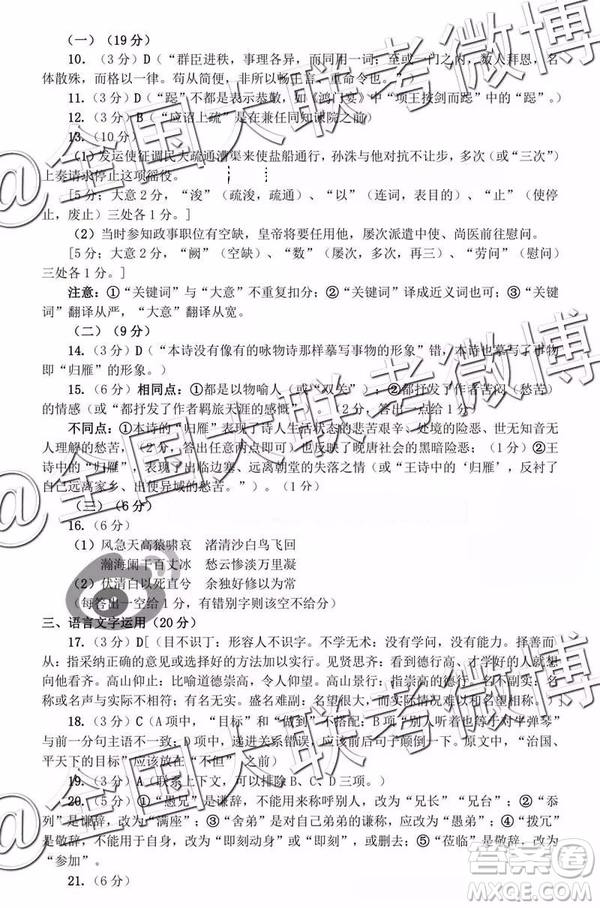 （一）（19分）
10.（3分）D（“群臣进秩，事理各异，而同用一词：至或一门之内，数人拜恩，名
体散殊，而格以一律。苟从简便，非所以畅王言、重命令也。”）
11.（3分）D（“跽”不都是表示恭敬，如《鸿门宴》中“项王按剑而跽”中的“跽”。）
12.（3分）B（“应诏上疏”是在兼任同知谏院之前）
13.（10分）
（1）发运使征调民夫疏通漕渠来使盐船通行，孙洙与他对抗不让步，多次（或“三次”）
上奏请求停止这徭役。
[5分；大意2分，“浚”（疏浚，疏通）、“以”（连词，表目的）、“止”（使停
止，废止）三处各1分。]
（2）当时参知政事职位有空缺，皇帝将要任用他，屡次派遣中使、尚医前往慰问。
[5分；大意2分，“阙”（空缺）、“数”（屡次，多次，再三）、“劳问”（慰问）
三处各1分。]
注意：①“关键词”与“大意”不重复扣分；②“关键词”译成近义可以；③“关键
词”翻译从严，“大意”翻译从宽。
（二）（9分）
14.（3分）D（“本诗没有像有的咏物诗那样摹写事物的形象”错，本诗也摹写了事物
即“归雁”的形象。）
15.（6分）相同点：①都是以物喻人（或“双关”）；②都抒发了作者苦闷（愁苦）
的情感（或“都抒发了作者羁旅天涯的感慨”）。（2分，答出一点给1分）
不同点：①本诗的“归雁”，表现了诗人生活状态的悲苦艰辛、处境的险恶、世无知音无
人理解的愁苦，（2分，答出任意两点即可）反映了晚唐社会的黑暗险恶（1分）；②王
诗中的“归雁”，表现了出临边塞、远离朝堂的失落之情（或“王诗中的‘归雁’，反衬了
自己远离家乡、出使异域的愁苦。”）。（1分）
（三）（6分）
16.（6分）
（1）风急天高猿啸哀 渚清沙白鸟飞回
瀚海阑干百丈冰 愁云惨淡万里凝
（2）伏清白以死直兮 余独好修以为常
（每答出一空给1分，有错别字则该空不给分）
三、语言文字运用（20分）
17.（3分）D[（目不识丁：形容人不识字。不学无术：指没有学问，没有能力。择善而从：
指采纳正确的意见或选择好的方法加以实行。见贤思齐：看到德行高，才学好的人就
想向他看齐。高山仰止：比喻道德崇高，令人仰望。高山景行：指崇高的德行。名实相符：
名声与实际不相符）。有名无实：盛名之下，其实难副：指名望很大的人，实际的才德常是
名声与实际不相符。有名无实：盛名之下，其实难副：指名望很大的人，实际的才德常是
18.（3分）C（A项中，“目标”和“做到”不搭配；B项，“别人听着也等于对牛弹琴”
与前一分句主语不一致；D项中，递进关系错误，应该前后句子顺倒一下。原文中，“治国、
平天下的目标”应该放在“不但”之前）
19.（3分）A（联系上下文，可以排除B、C、D三项。）
20.（5分）①“愚兄”是谦辞，不能用来称呼别人，改为“兄长”“兄台”；②“忝
列”是谦辞，改为“满座”；③“舍弟”是对自己弟弟的谦称，应改为“愚弟”；④“拨冗”
是敬辞，不能用于自身，改为“即刻动身”或“即刻”；⑤“莅临”是敬辞，改为“去”或
“参加”。
21.（6分）
@全国大联考微博
@全国大联考微博
@全国大联考微博
答案卷
MXQE.COM